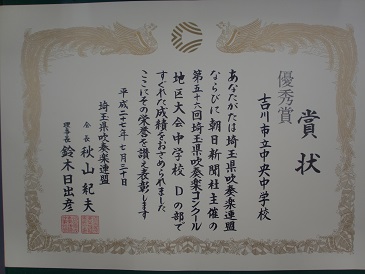 賞状
優秀賞
吉川市立中央中学校
あなたがたは埼玉県吹奏楽連盟
ならびに朝日新聞社主催の
第五十六回埼玉県吹奏楽コンクール
地区大会中学校Dの部で
すぐれた成績をおさめられました
ここにその栄誉を讃え表彰します
平成二十七年七月三十日
埼玉県吹奏楽連盟
会長 秋山紀夫
理事長 鈴木日出彦